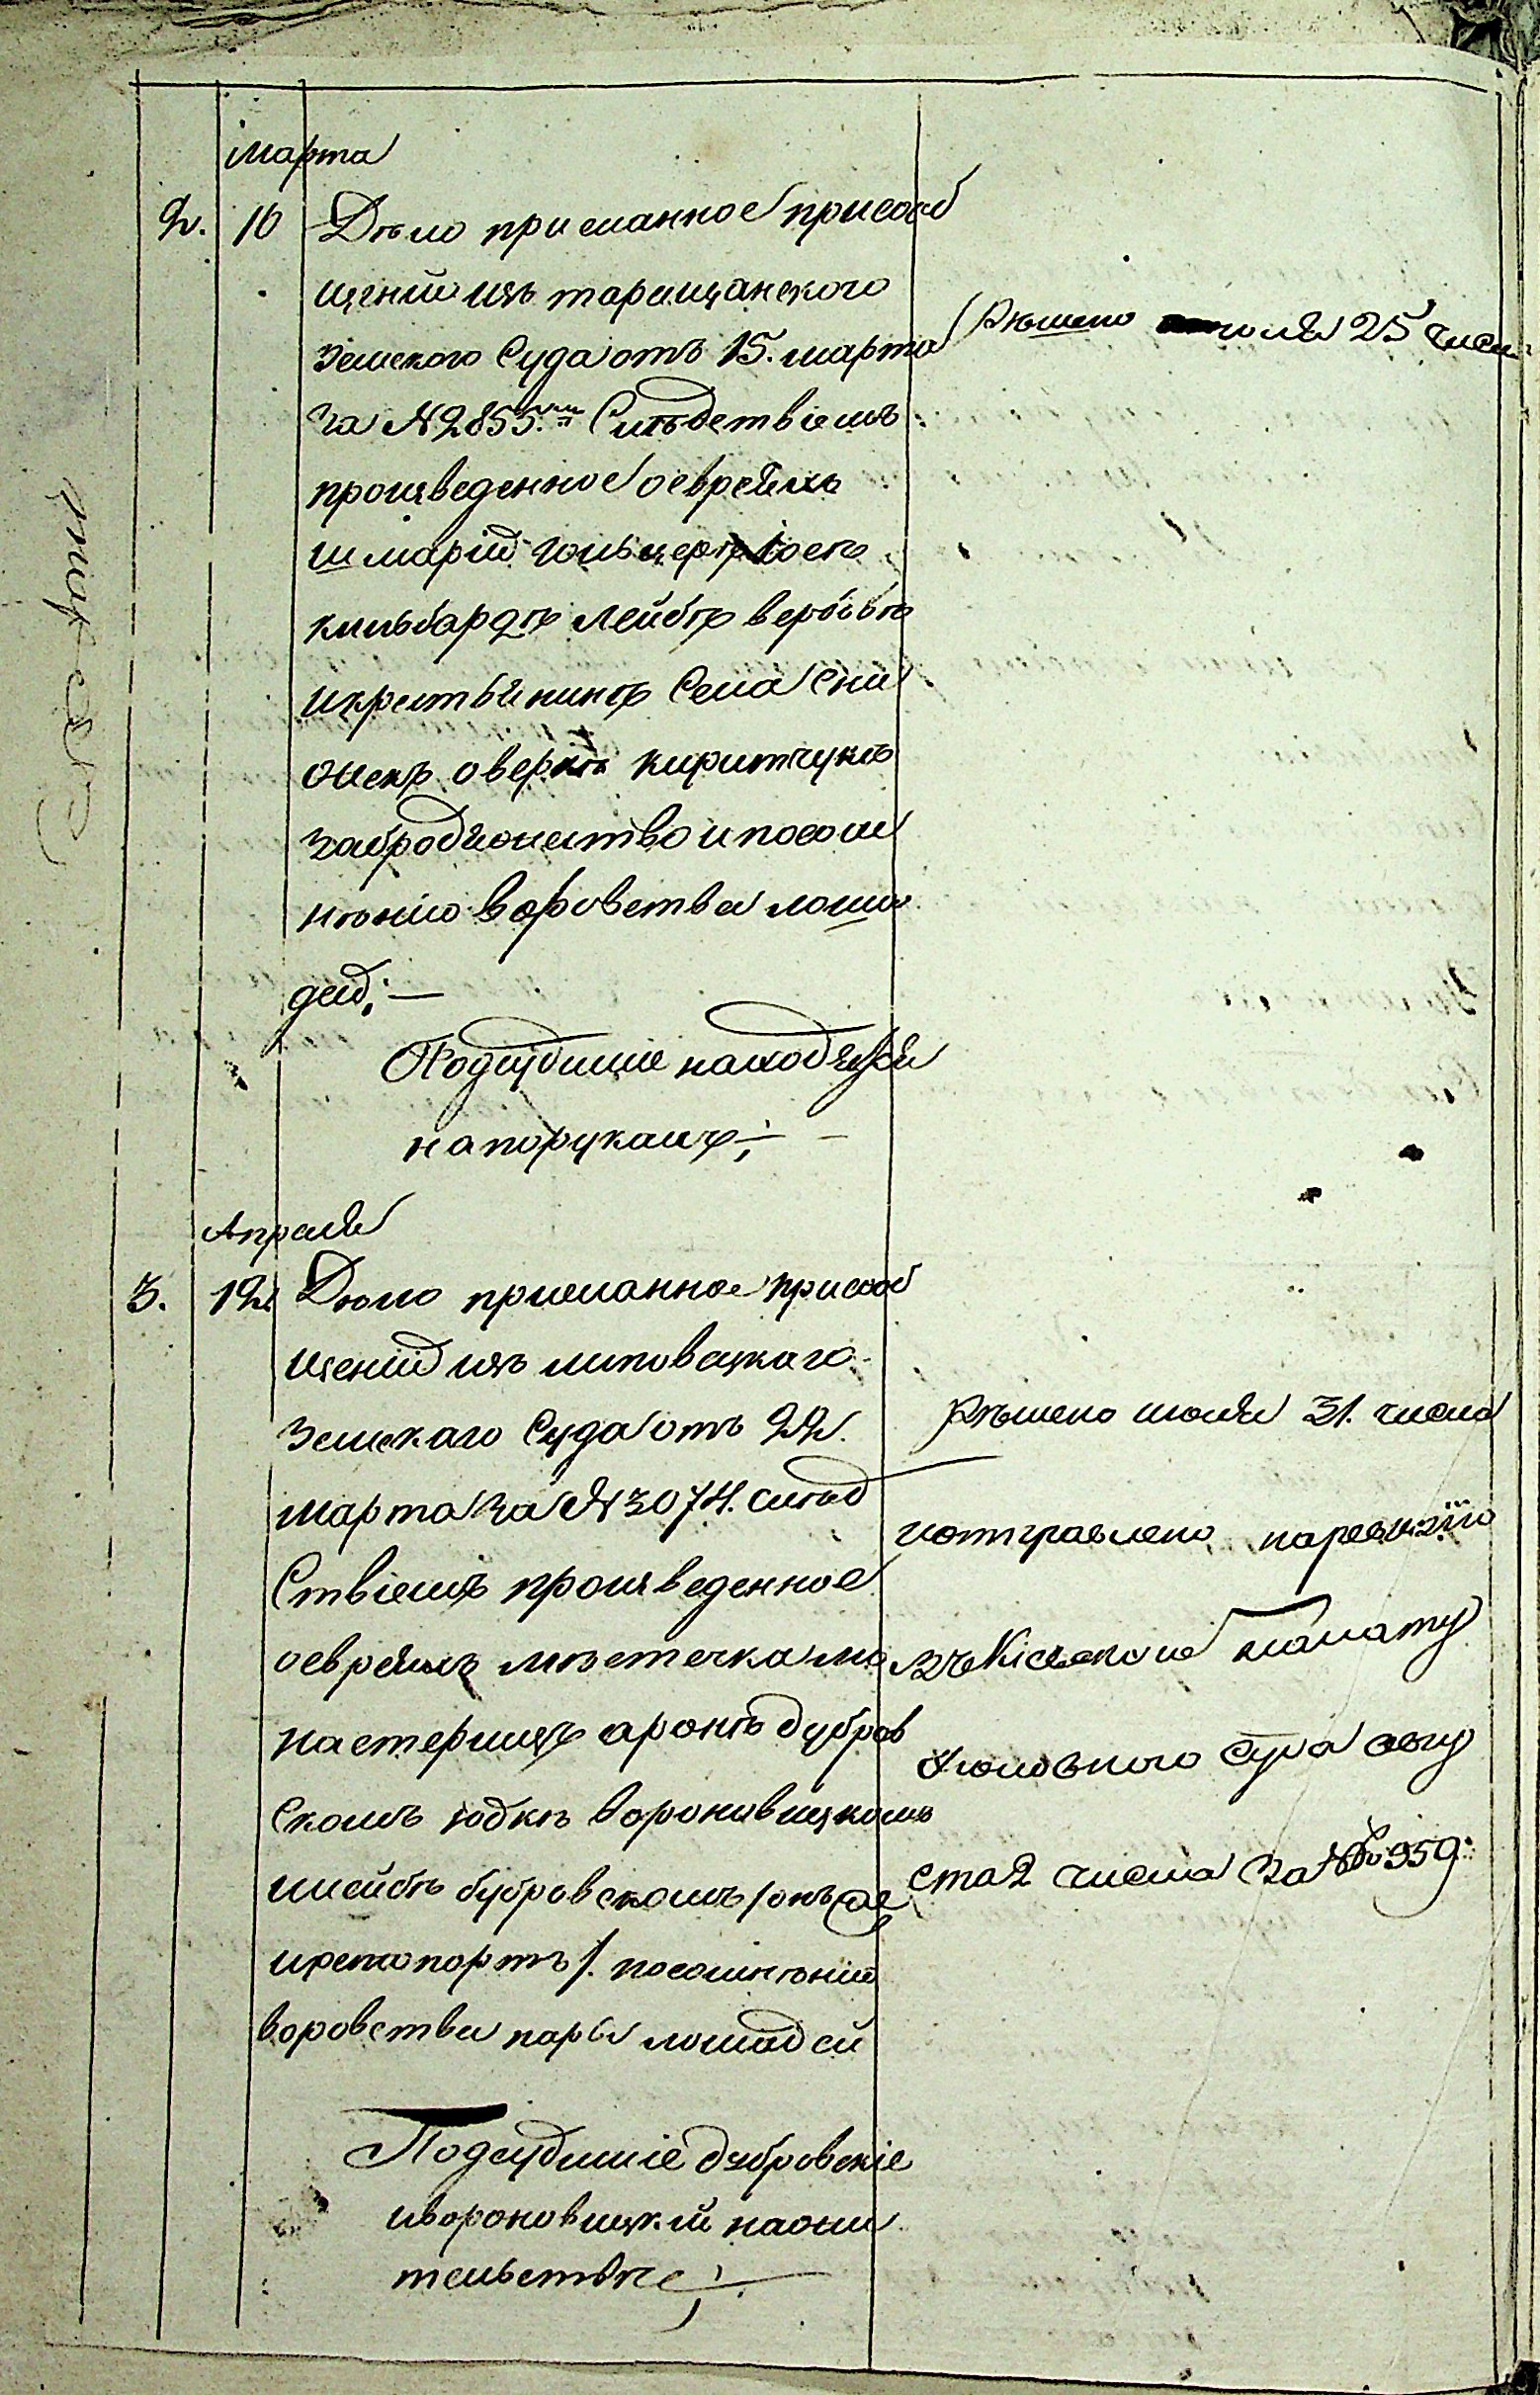 Марта
2. 16 Дѣло присланное присооб
щеніи изъ таращанского
Земского Суда отъ 15. марта
за №2855.мъ Слѣдствіемъ
произведенное оевреяхъ
шмаріи гольцерѣ Іосѣ
кильбардѣ лейбѣ
икрестьянинѣ Села Сни
киритчукѣ
забродяжество ипосом
нѣнію воровства лоша
дей;—
Подсудиміе находятся
напорукахъ;—
Решено іюля 25 числа
Апреля
3. 12 Дѣло присланное присооб
щеніи изъ липовецкаго
Земскаго Суда отъ 22.
марта за №3074. слѣд
Ствіемъ произведенное
оевреяхъ мѣстечка мо
настерищъ аронѣ дубров
скомъ юдкѣ вороновицкомъ
илейбѣ дубровскомъ /онъже
ирепапортъ/. посомнѣнію
воровства пары лошадей
Подсудиміе дубровскіе
ивороновицкій наоби
тельствѣ;—
Рѣшено июля 31. числа
иотправлено наревизію
въ Кіевскую палату
Уголовного Суда авгу
ста 2 числа за № 959.